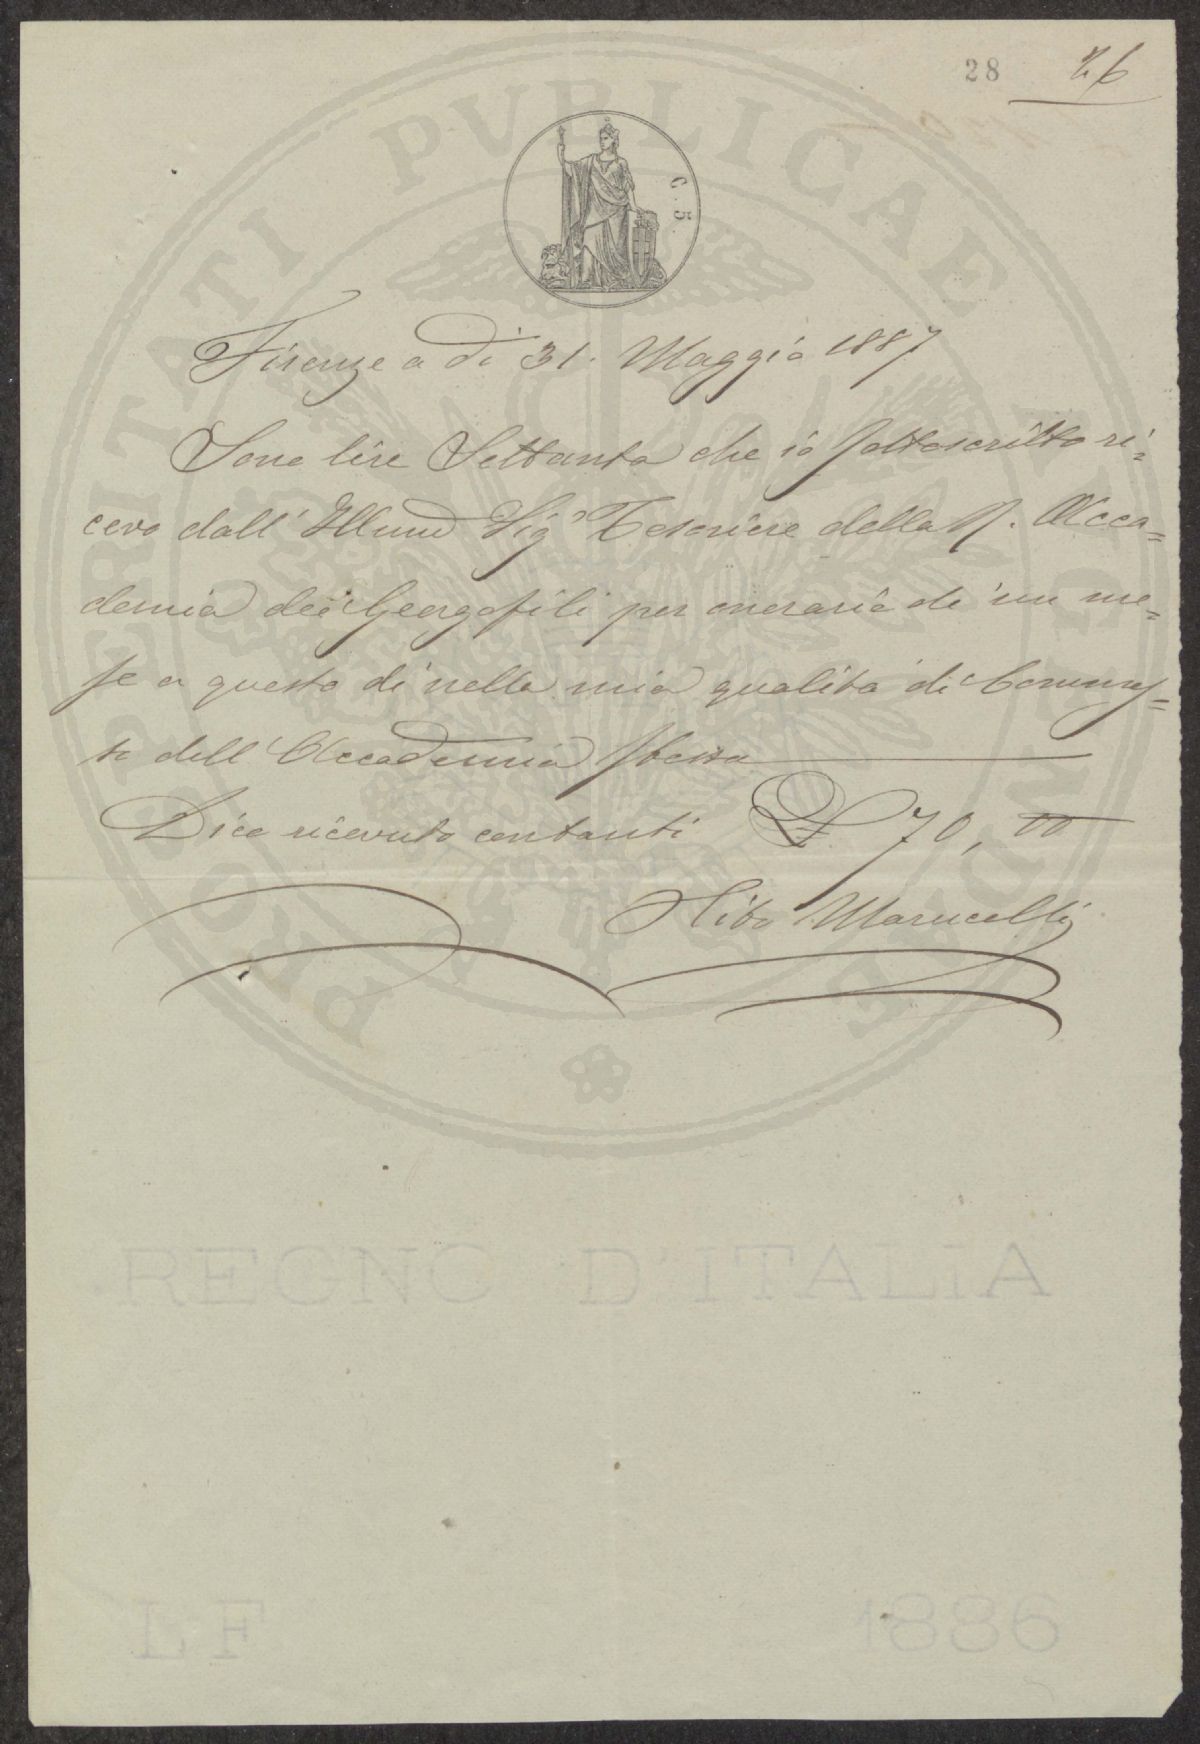 28 26
PROSPERITATI PVBLICAE AVGENDAE
C. 5.
Firenze a dì 31. Maggio 1887
Sono lire Settanta che io sottoscritto ri-
cevo dall' Illmo Sig Tesoriere della R. Acca=
demia dei Georgofili per onorario di un me=
se a questo dì nella mia qualità di Commes=
so dell' Accademia stessa
Dico ricevuto contanti £ 70,00
Marucelli
REGNO D'ITALIA
LF 1886